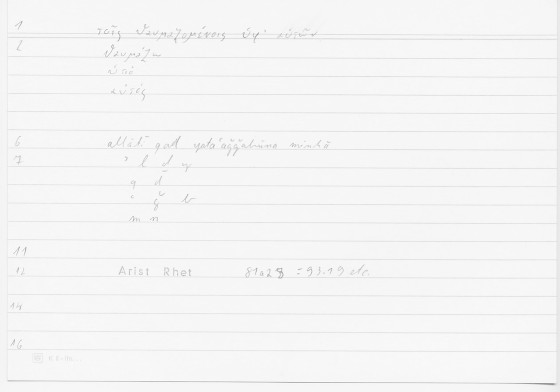 1 τοῖς θαυμαζομένοις ὑφ' αὐτῶν
2 θαυμάζω
ὑπό
αὐτός
6 allātī qad yataʿaǧǧabūna minhā
7 ʾ l ḏ y
q d
ʿ ǧ b
m n
11
12 Arist Rhet 81a28 = 93.19
14
16